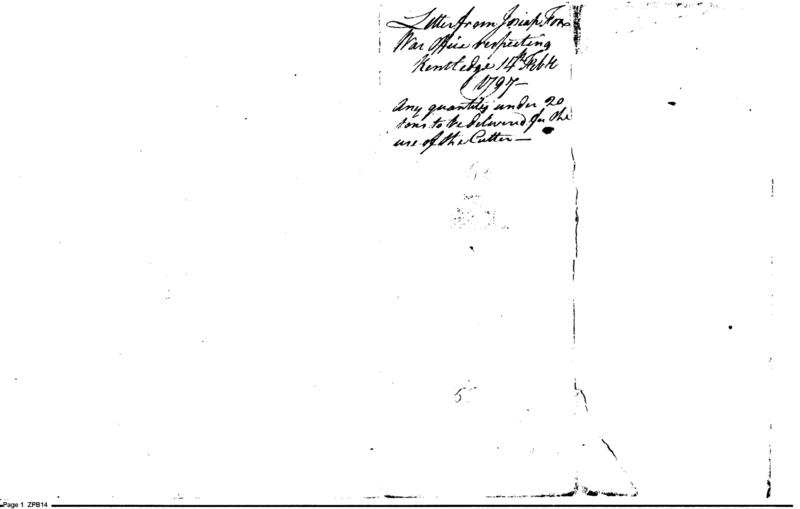 Letter from Josiah Fox
War Office respecting
Kentledge 14th Febr
1797—
Any quantities under 20
tons to be delivered for the
use of the Cutter—
5
Page 1 ZPB14